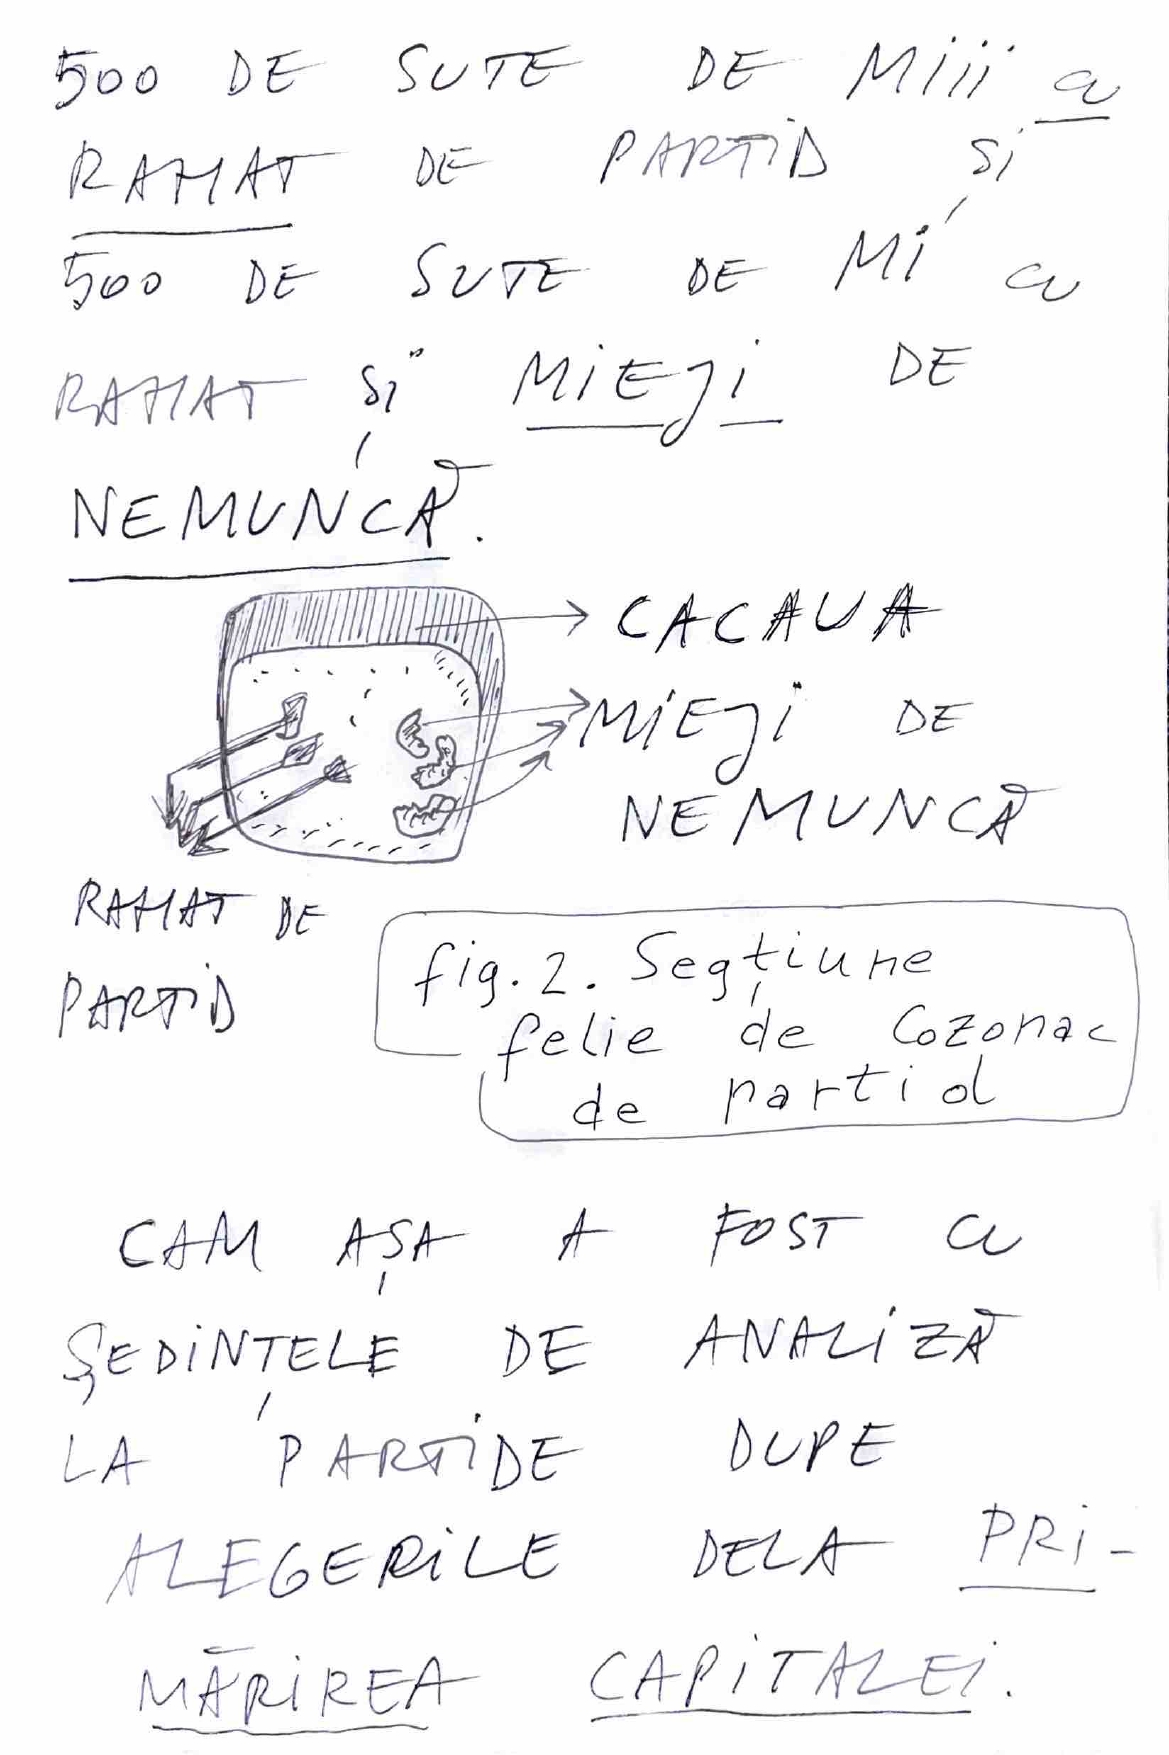 500 DE SUTE DE Miii cu
RAHAT DE PARTiD și
500 DE SUTE DE Mi cu
RAHAT și MiEJi DE
NEMUNCĂ.
CACAUA
MiEJi DE
NEMUNCĂ
RAHAT DE
PARTiD
fig. 2. Segțiune
felie de Cozonac
de partid
CAM AȘA A FOST CU
ȘEDiNȚELE DE ANALiZĂ
LA PARTiDE DUPE
ALEGERiLE DELA PRi-
MĂRiREA CAPiTALEi.